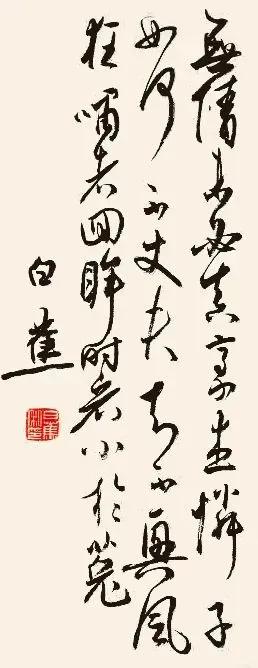 無情未必真豪杰憐子
如何不丈夫知否興風
狂嘯者回眸時看小於菟
白蕉